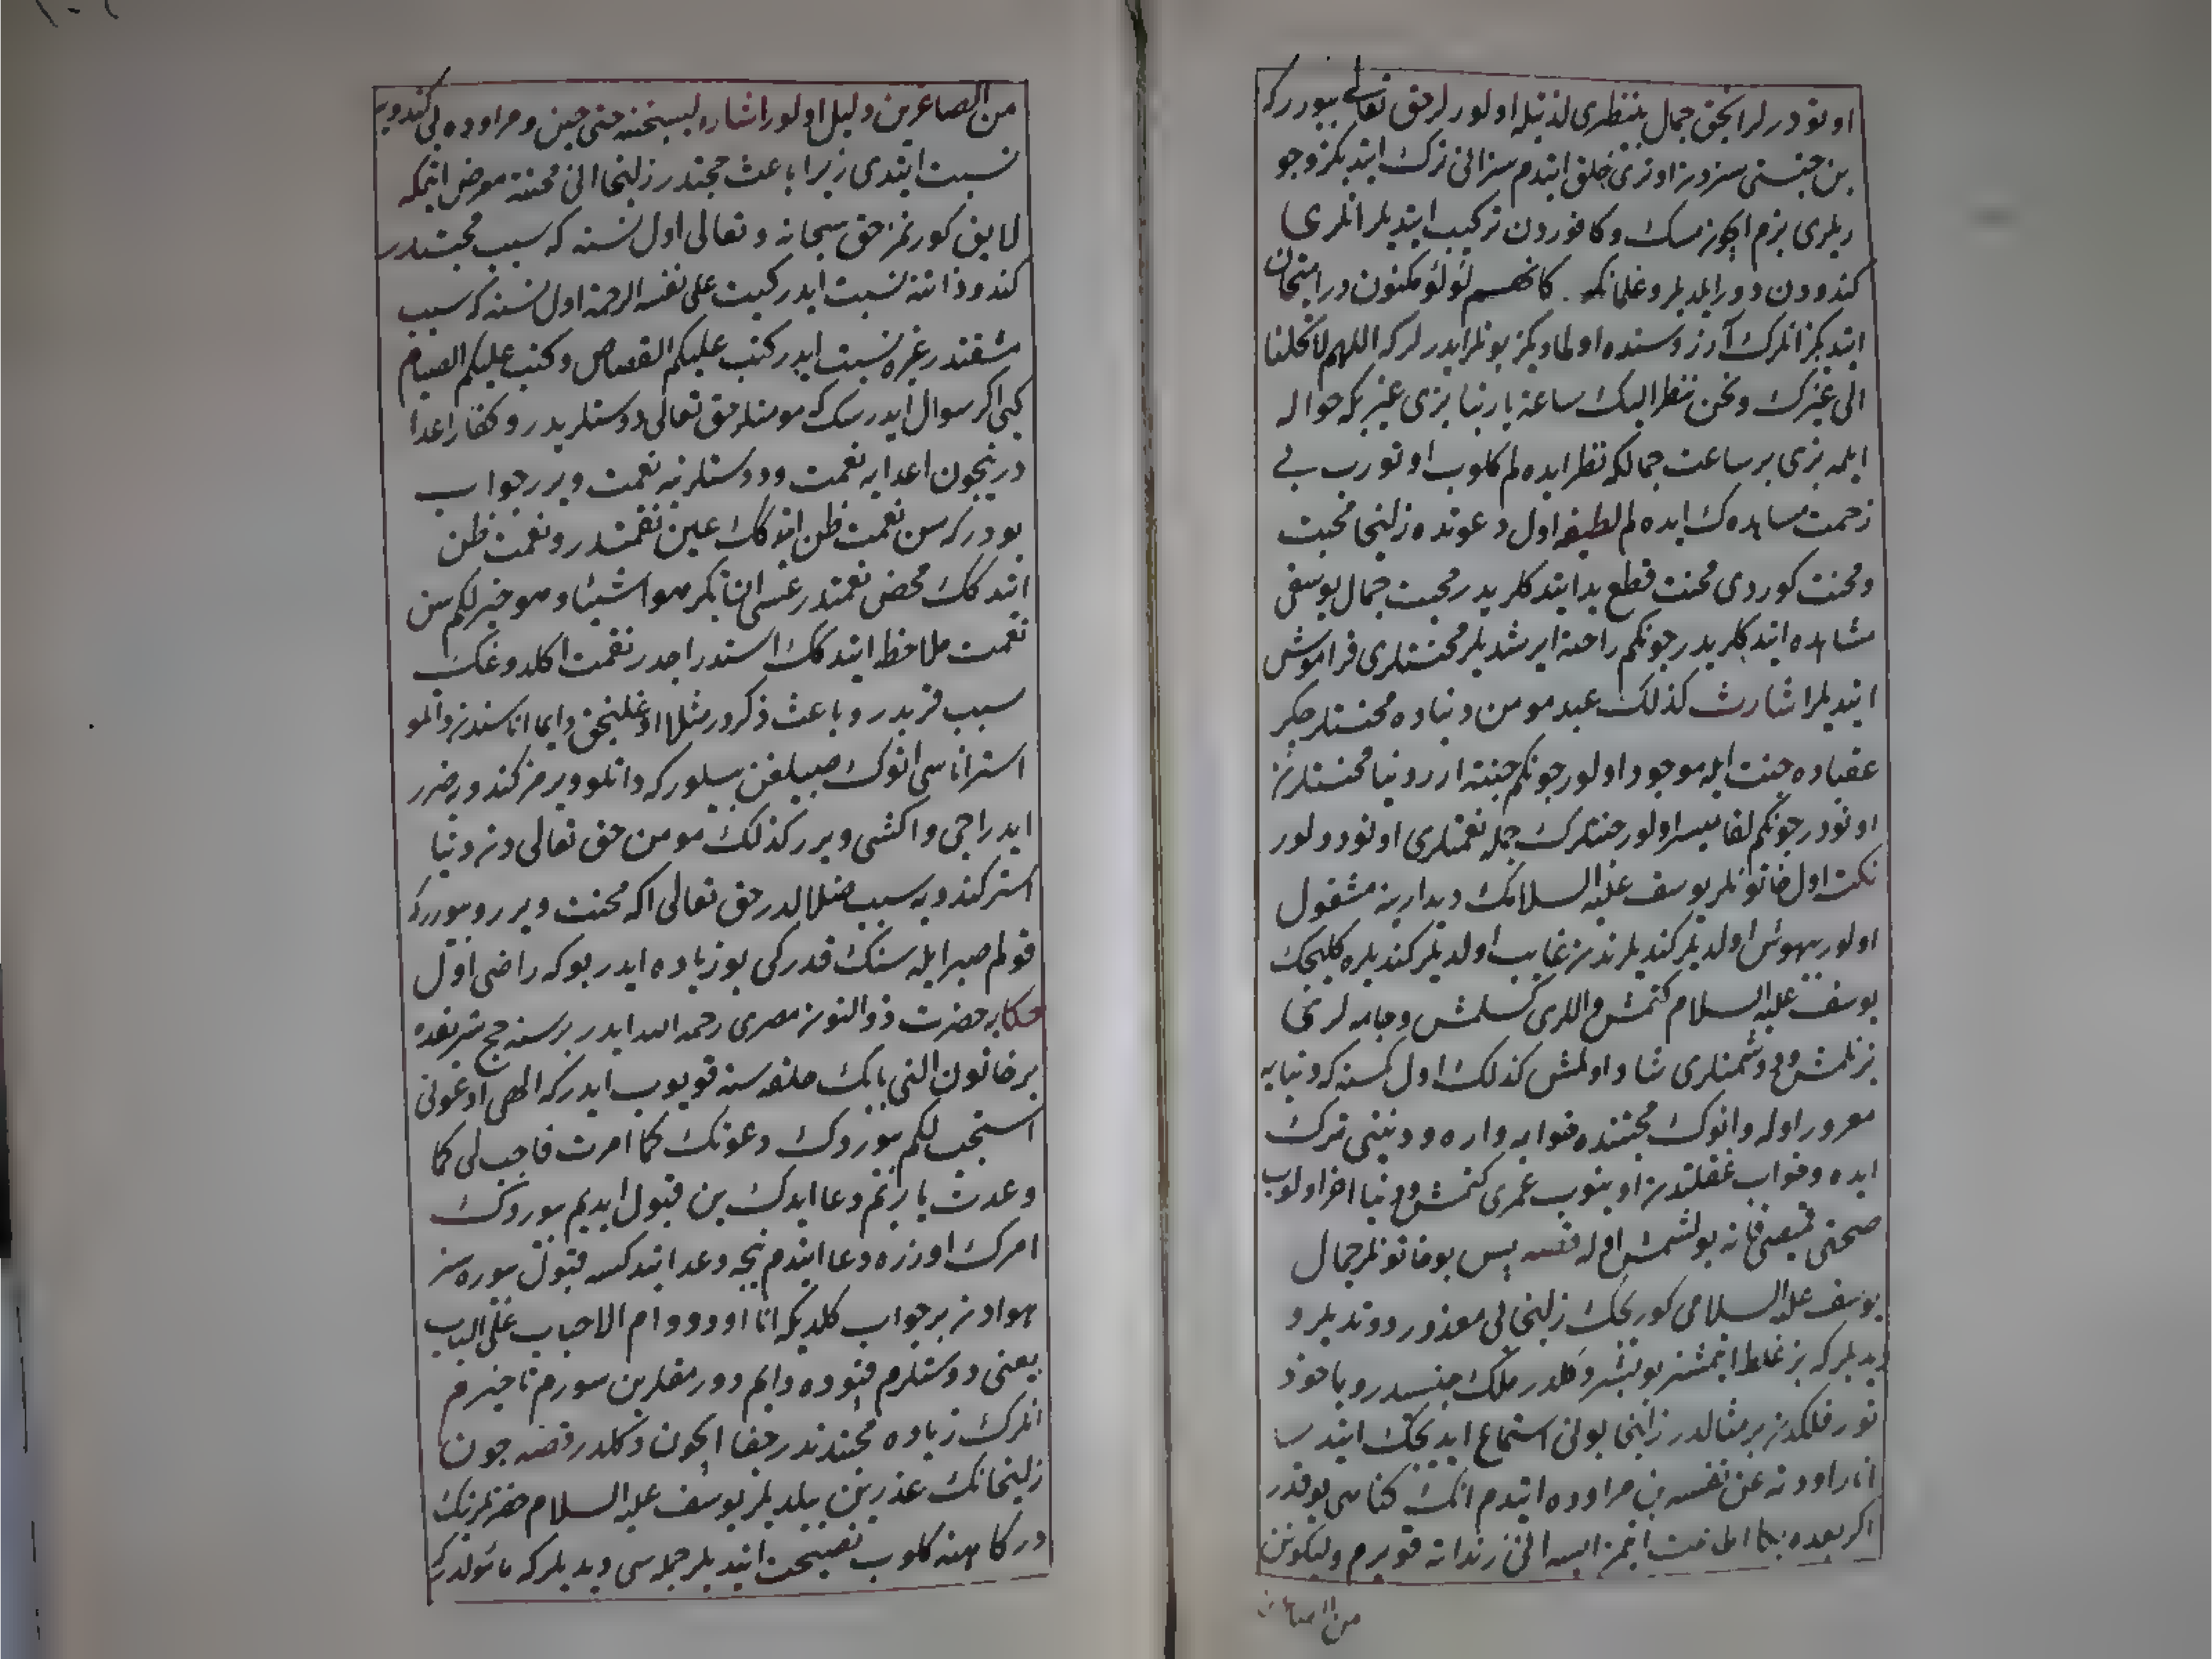 اونودرلر انجق جمال بنظری لذتیله اولورلر حق تعالی بیوررکه
بن جنتی سزدن اوتری خلق ایتدم سز انی ترک ایتدیکز وحو
ریلری بزم ایچون مسک وکافوردن ترکیب ایتدیلر انلری
کندودن دور ایلدیلر وغلمانکه کانهم لؤلؤ مکنون در امتحان
ایتدیکز انلرک آرزوسنده اولمادیکز بونلر ایدرلر که اللهم لا تکلنا
الی غیرک ونحن ننظر الیک ساعة یا ربنا بزی غیریکه حواله
ایلمه بزی بر ساعت جمالکه نظر ایده لم کلوب اوتورب بی
زحمت مساهده ک ایده لم لطیفه اول دعوتده زلیخا محبت
ومحنت کوردی محنت قطع ید ایتدکلریدر محبت جمال یوسفی
مشاهده ایتدکلریدر چونکم راحته ایرشدیلر محنتلری فراموش
ایتدیلر اشارت کذلک عبد مومن دنیاده محنتلر چکر
عقباده جنت ایله موجود اولور چونکم جنته ارر دنیا محنتلرین
اونودر چونکم لقا میسر اولور جنتلرک جمله نعمتلری اونودولور
نکت اول خاتونلر یوسف علیه السلامک دیدارینه مشغول
اولور بیهوش اولدیلر کندیلرندن غایب اولدیلر کندیلره کلیجک
یوسف علیه السلام کتمش واللری کسلمش وجامه لرنجا
بزلمش ودشمنلری شاد اولمش کذلک اول کسنه که دنیایه
مغرور اوله وانوک محبتنده خوابه واره ودینتی ترک
ایده وخواب غفلتدن اوینوب عمری کتمش ودنیا اخر اولوب
صحتی بولنمش اوله قصه پس بو خاتونلر جمال
یوسف علیه السلامی کوریجک زلیخایی معذور دوتدیلر و
دیدیلر که بز غلط ایتمشز بو بشر دکلدر ملک جنسیدر ویا خود
نور فلکدن بر مثالدر زلیخا بونی استماع ایدیجک ایتدی
انا راودته عن نفسه بن مراوده ایتدم انک کناهی یوقدر
اکر بعده بکا اطاعت ایتمز ایسه انی زندانه قویرم ولیکونن
من الصا
من الصاغرین ذلیل اولور اشاره لیسجننه حتی حین ومراوده یی کندویه
نسبت ایتدی زیرا باعث محبتدر زلیخا انی محنته معرض ایتمکه
لایق کورنمز حق سبحانه وتعالی اول نسنه که سبب محبتدر
کندو ذاتنه نسبت ایدر کتب علی نفسه الرحمة اول نسنه که سبب
مشقتدر غیره نسبت ایدر کتب علیکم القصاص وکتب علیکم الصیام
کبی اکر سوال ایدرسک که مومنلر حق تعالی دوستلریدر وکفار اعدا
در نیچون اعدایه نعمت ودوستلرینه نقمت ویرر جواب
بودر که سن نعمت ظن ایتدکک عین نقمتدر ونقمت ظن
ایتدکک محض نعمتدر عسی ان تکرهوا شیئا وهو خیر لکم سن
نعمت ملاحظه ایتدکک استدراجدر نقمت اکلدوغک
سبب قربدر وباعث ذکردر مثلا اوغلنجق دایما اناسندن طاتلو
استر اناسی انوک صبیلغن بیلور که طاتلو ویرمز کندویه ضرر
ایدر اجی واکشی ویرر کذلک مومن حق تعالی دن دنیا
استر کندویه سبب ضلالدر حق تعالی اکه محنت ویرر وبیوررکه
قولم صبر ایله سنک قدرکی بو زیاده ایدر بوکه راضی اول
حکایه حضرت ذوالنون مصری رحمه الله ایدر بر سنه حج شریفده
بر خاتون التی بابک حلقه سنه قویوب ایدر که الهی ادعونی
استجب لکم بیوردک دعوتک کما امرت فاجب لی کما
وعدت یا ربم دعا ایدک بن قبول ایدیم بیوردک
امرک اوزره دعا ایتدم نیجه وعد ایتدکسه قبول بیوره سز
هوادن بر جواب کلدیکه انا اوددوام الاحباب علی الباب
یعنی دوستلرم قپوده دایم دورمقلرین سورم تاخیرم
انلرک زیاده محبتدندر جفا ایچون دکلدر قصه چون
زلیخانک عذرینن بیلدیلر یوسف علیه السلام حضرتلرینک
درکاهنه کلوب نصیحت ایتدیلر جمله سی دیدیلر که